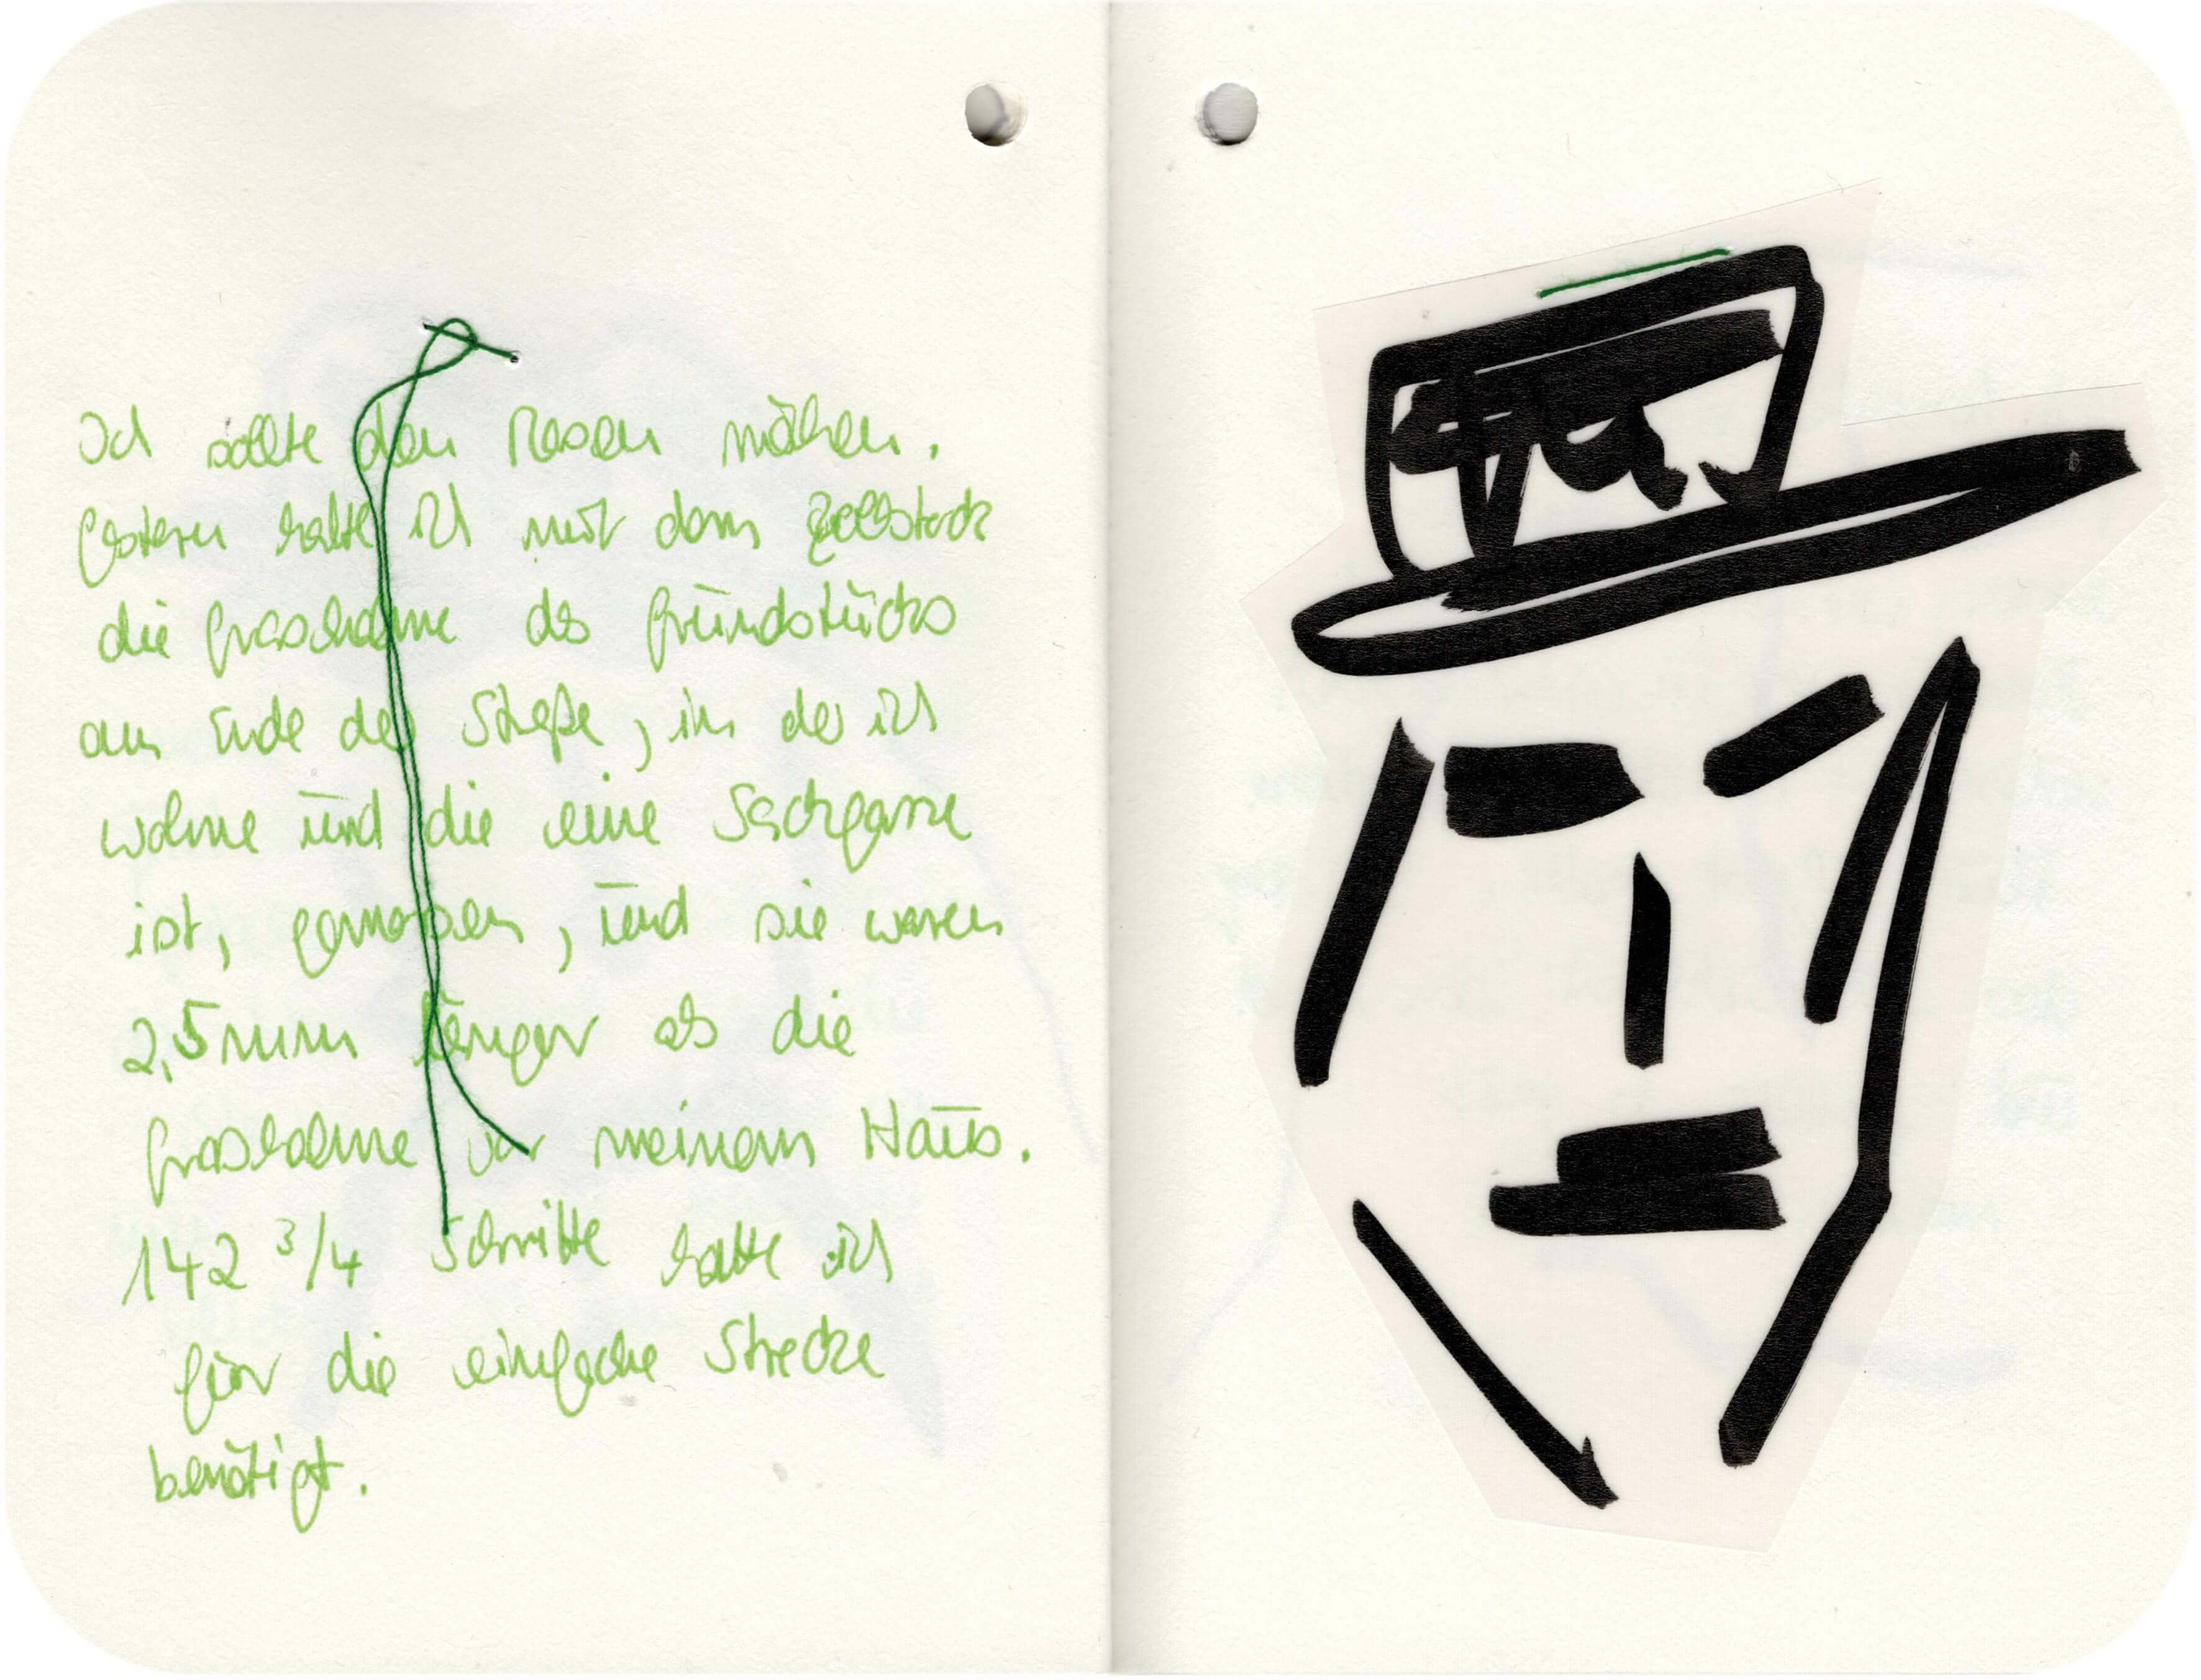 Ich sollte den Rasen mähen.
Gestern hatte ich mit dem Zollstock
die Grashalme des Grundstücks
am Ende der Straße, in der ich
wohne und die eine Sackgasse
ist, gemessen, und sie waren
2,5mm länger als die
Grashalme vor meinem Haus.
142 3/4 Schritte hatte ich
für die einfache Strecke
benötigt.